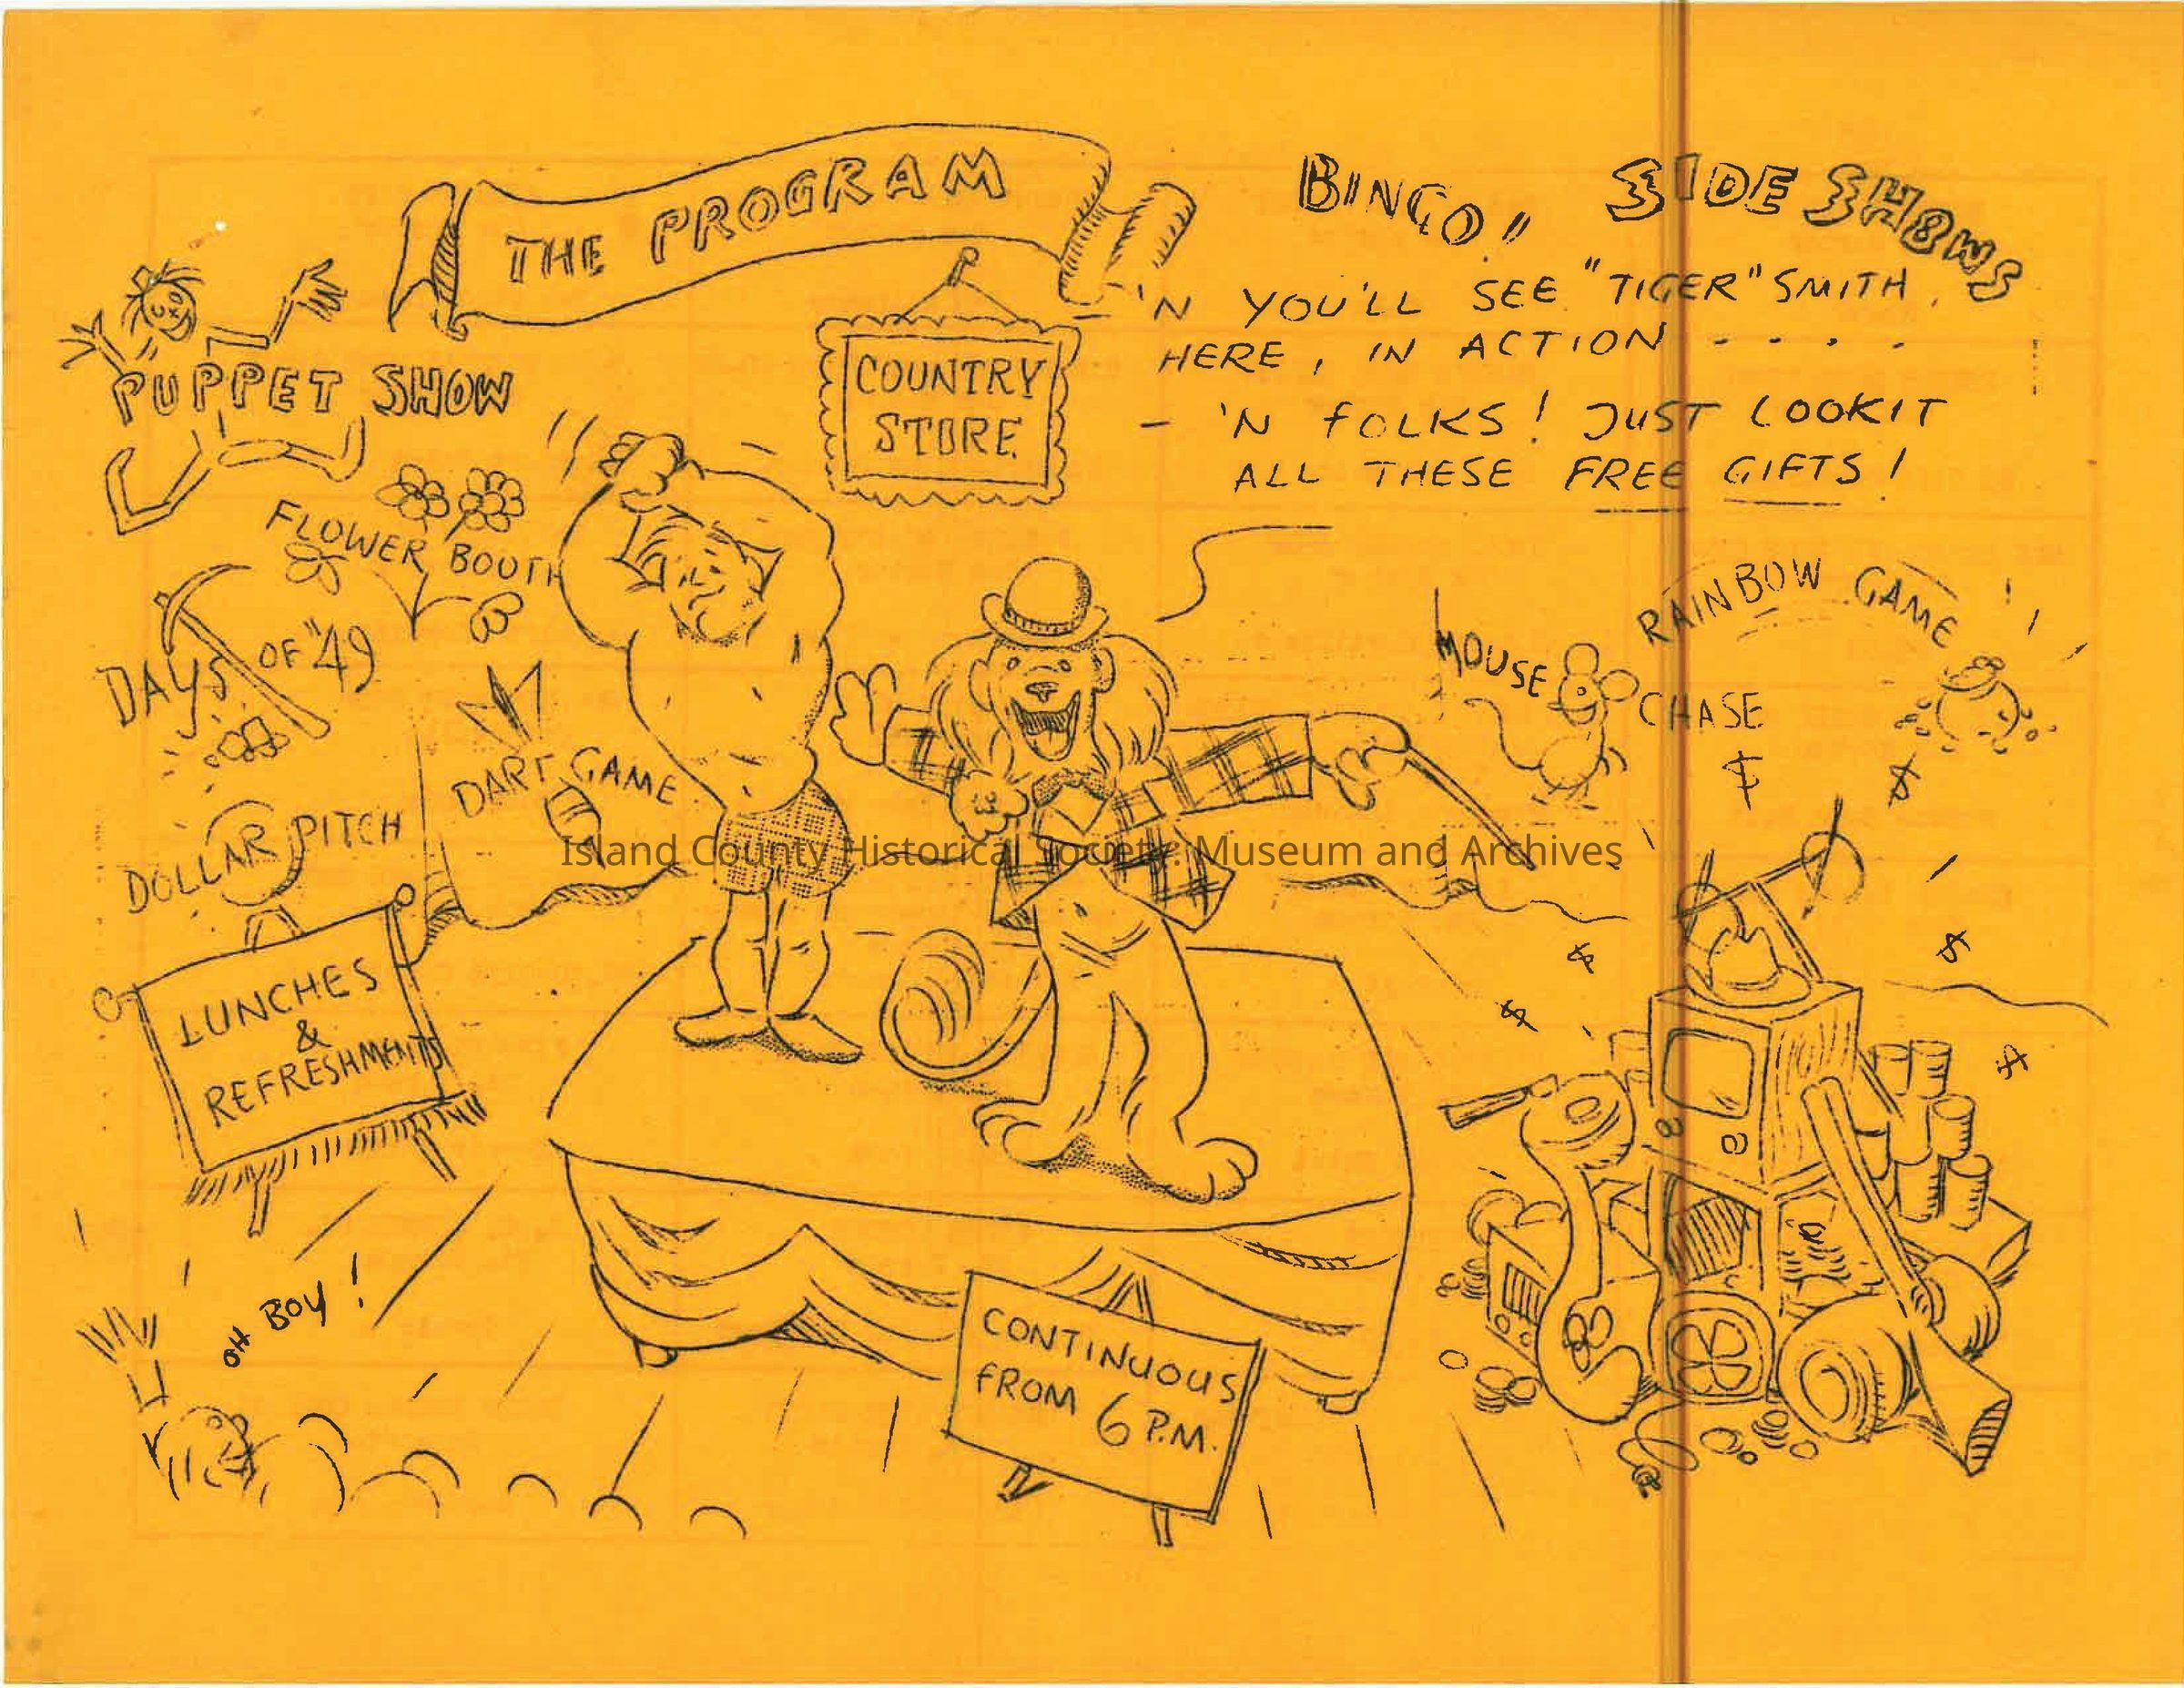 THE PROGRAM
BINGO!!
SIDE SHOWS
- 'N YOU'LL SEE "TIGER" SMITH,
HERE, IN ACTION - - - -
- 'N FOLKS! JUST LOOKIT
ALL THESE FREE GIFTS!
PUPPET SHOW
COUNTRY
STORE
FLOWER BOOTH
DAYS OF '49
DART GAME
DOLLAR PITCH
MOUSE CHASE
RAINBOW GAME
$ $
$ $
$ $
Island County Historical Society: Museum and Archives
LUNCHES
&
REFRESHMENTS
OH BOY!
CONTINUOUS
FROM 6 P.M.